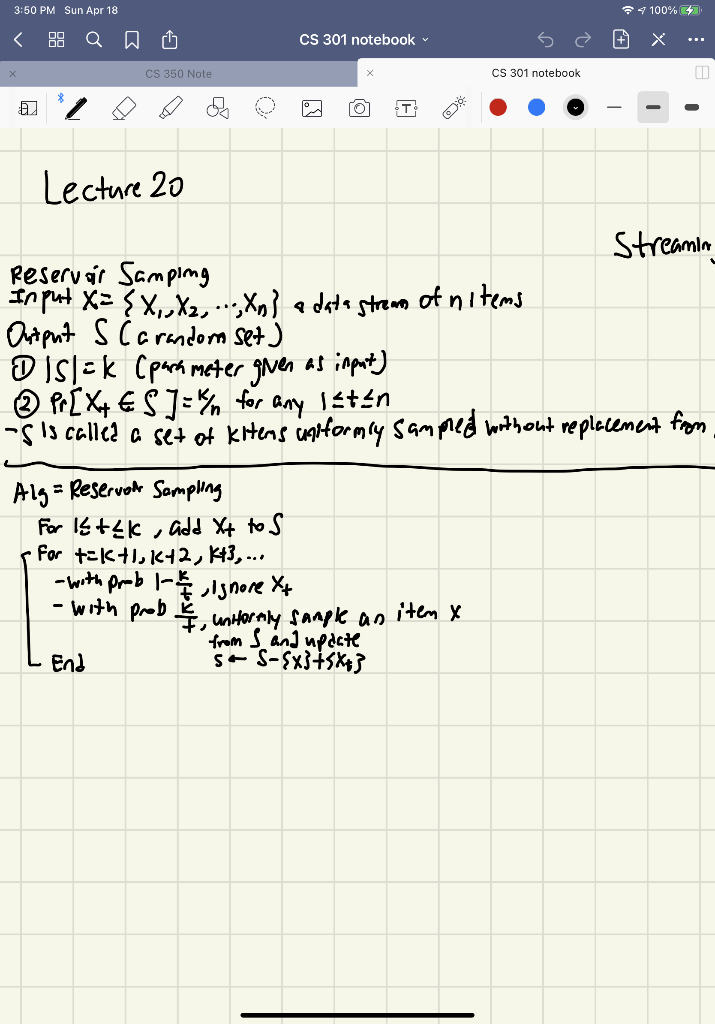 3:50 PM Sun Apr 18
100%
CS 301 notebook
CS 350 Note
CS 301 notebook
Lecture 20
Streamin
Reservoir Sampling
Input X= {X₁,X₂, ...,Xn} a data stream of n items
Output S (a random set)
① |S|=k (parameter given as input)
② Pr[Xt ∈ S]=k/n for any 1≤t≤n
-S is called a set of k items uniformly sampled without replacement from
Alg = Reservoir Sampling
For 1≤t≤k , add Xt to S
For t=k+1, k+2, k+3, ...
-with prob 1-k/t , ignore Xt
- with prob k/t, uniformly sample an item x
from S and update
S ← S-{x}+{Xt}
End